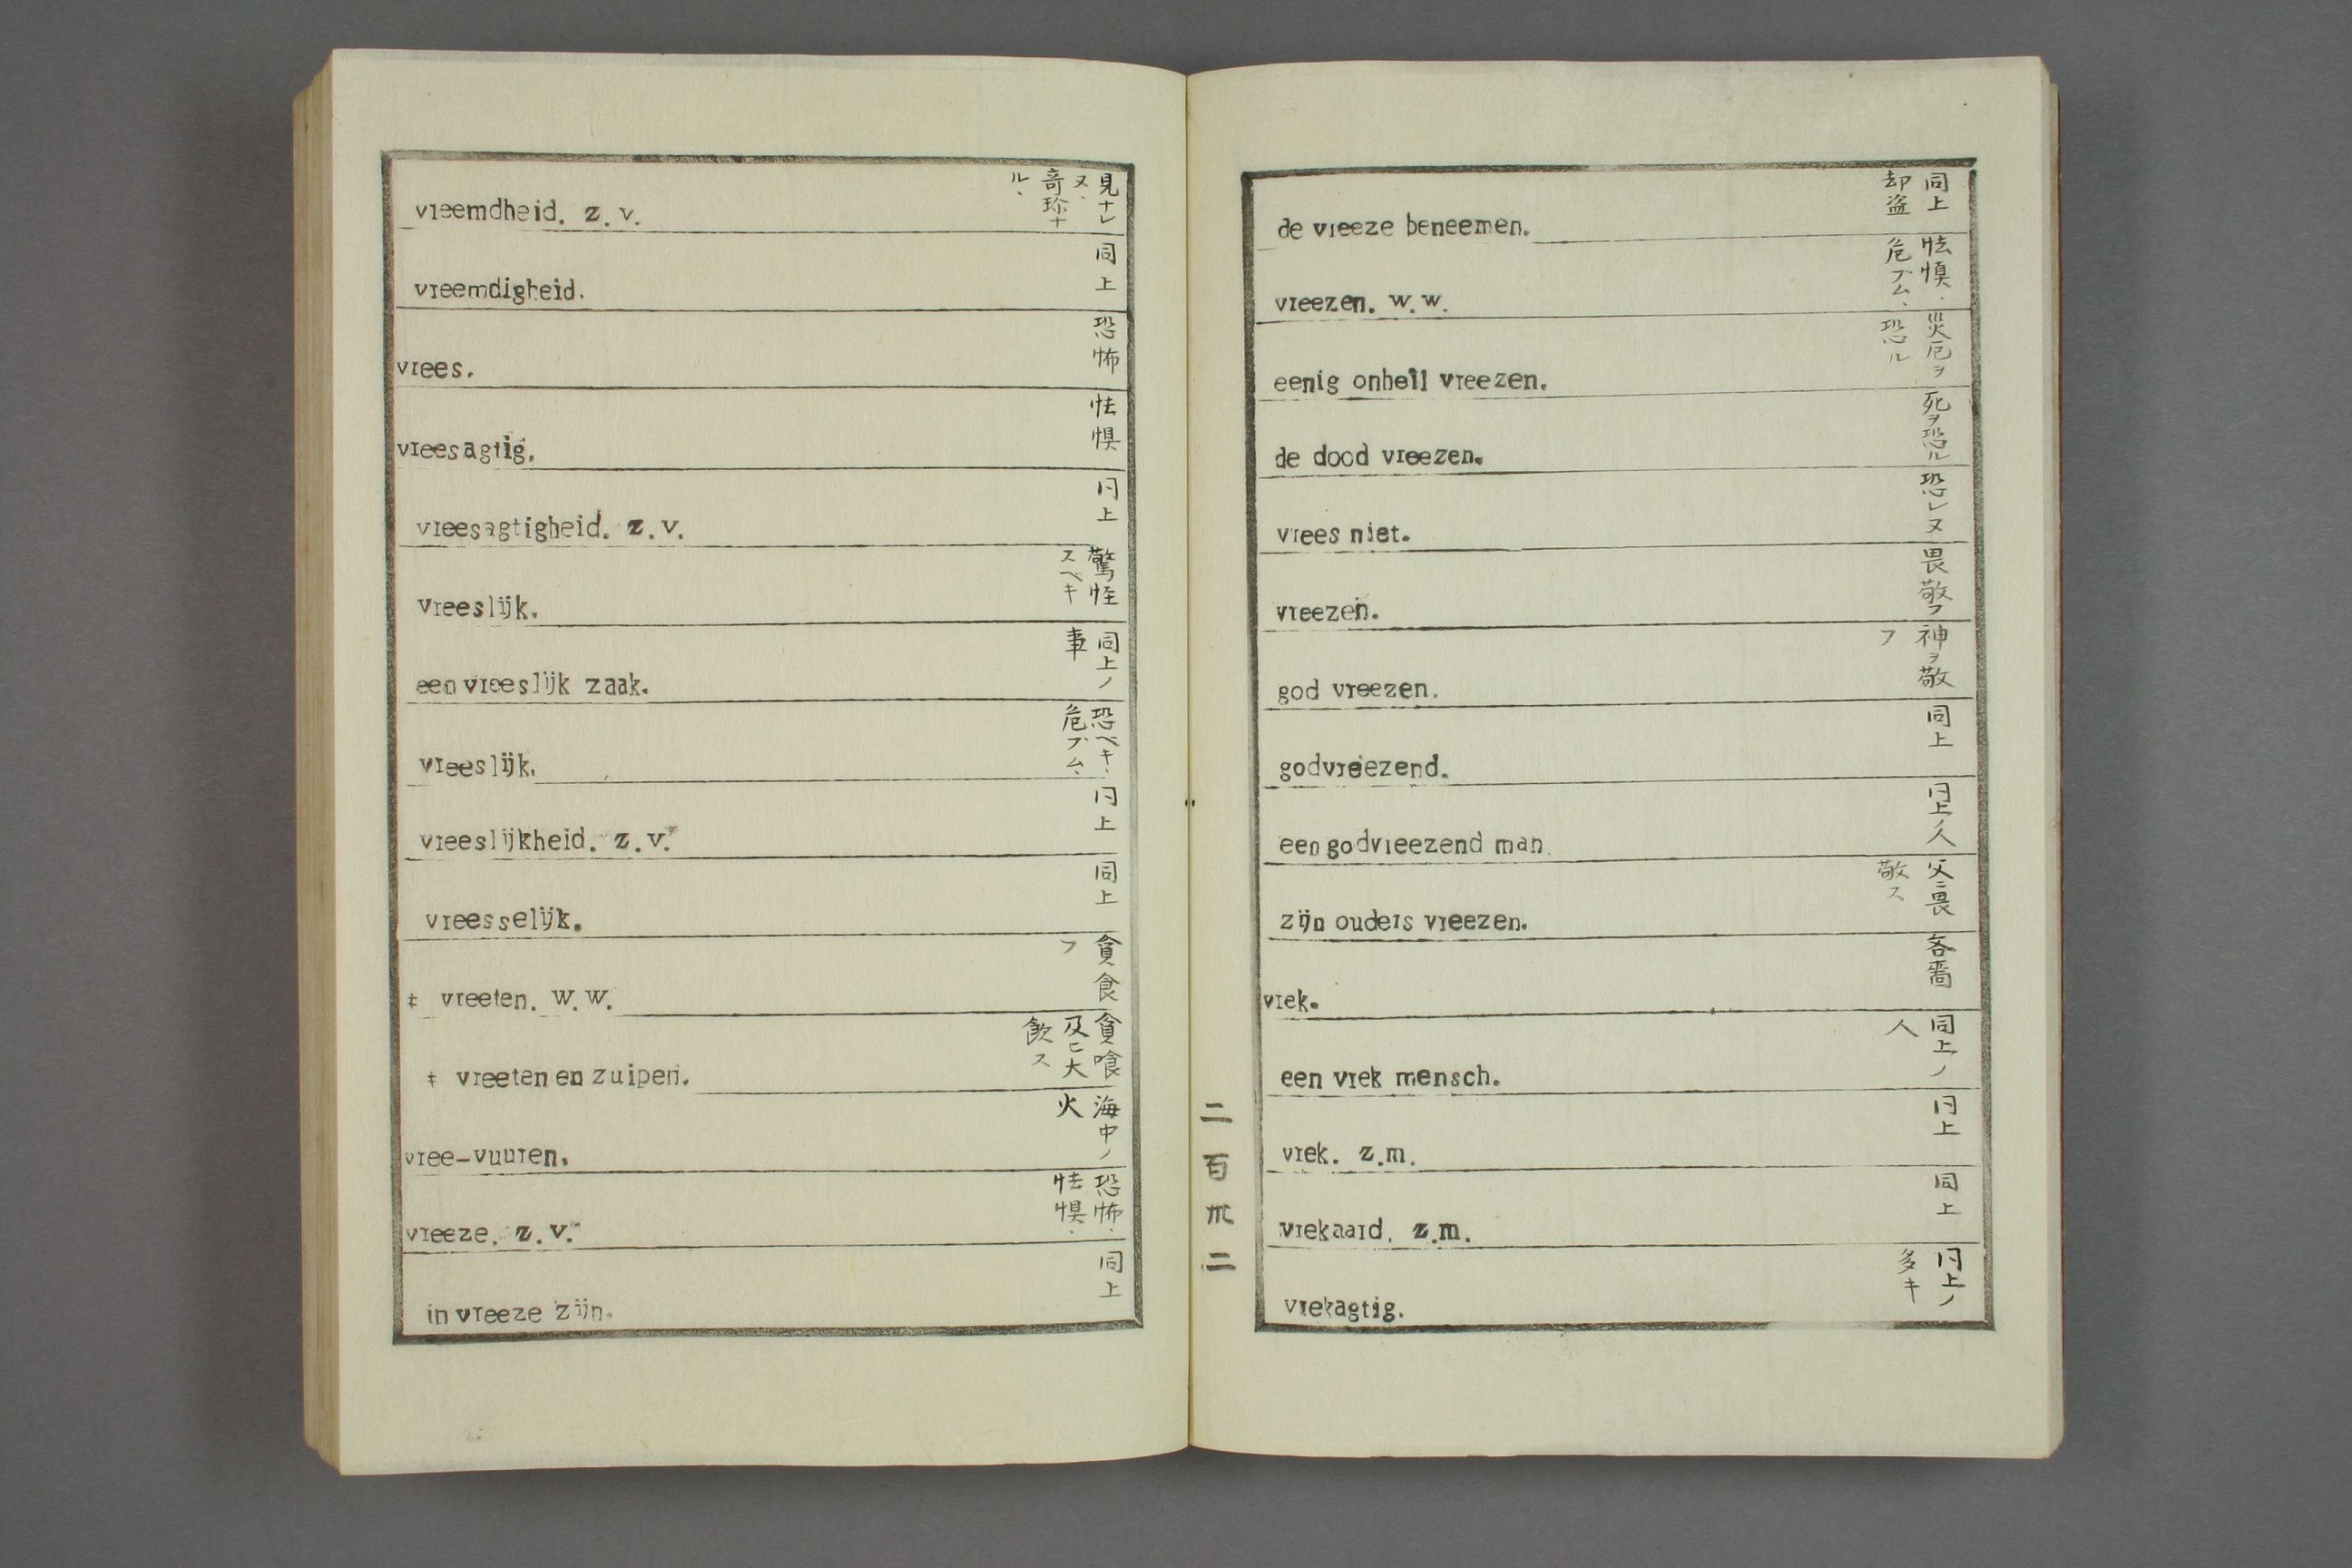 vreemdheid. z.v.
見ナレ
ヌ、
奇珎ナ
ル、
vreemdigheid.
同上
vrees.
恐怖
vreesagtig.
怯惧
vreesagtigheid. z.v.
仝上
vreeslijk.
驚恠
スベキ
een vreeslijk zaak.
同上ノ
事
vreeslijk.
恐ベキ、
危ブム、
vreeslijkheid. z.v.
仝上
vreesselijk.
同上
‡ vreeten. w.w.
貪食
フ
‡ vreeten en zuipen.
貪喰
及ヒ大
飲ス
vree-vuuren.
海中ノ
火
vreeze. z.v.
恐怖、
怯惧、
in vreeze zijn.
同上
de vreeze beneemen.
同上
却盗
vreezen. w.w.
怯惧、
危ブム、
eenig onheil vreezen.
災厄ヲ
恐ル
de dood vreezen.
死ヲ恐ル
vrees niet.
恐レヌ
vreezen.
畏敬フ
god vreezen.
神ヲ敬
フ
godvreezend.
同上
een godvreezend man.
仝上ノ人
zijn ouders vreezen.
父ニ畏
敬ス
vrek.
吝嗇
een vrek mensch.
同上ノ
人
vrek. z.m.
仝上
vrekaard. z.m.
同上
vrekagtig.
仝上ノ
多キ
二百卅二